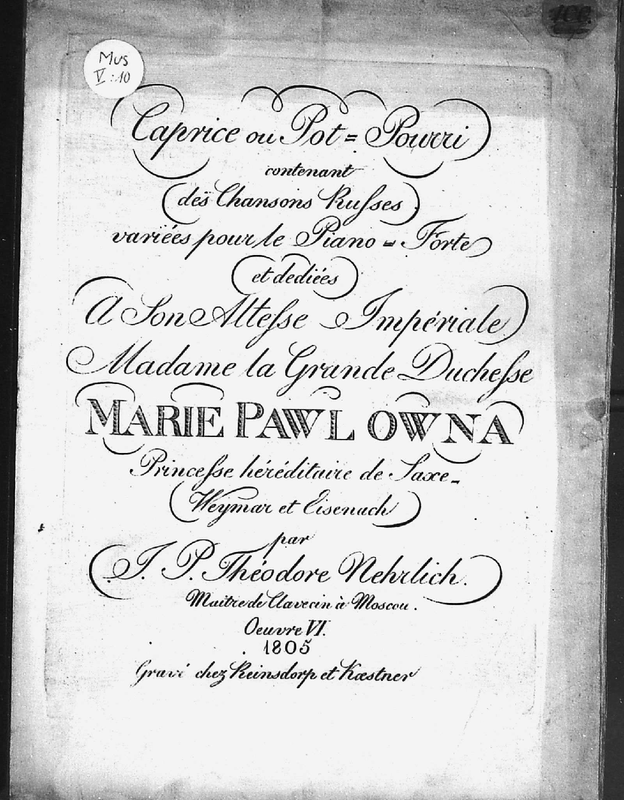 Mus
V:10
100.
Caprice ou Pot = Pourri
contenant
des Chansons Ruſses
variées pour le Piano = Forte
et dediées
A Son Alteſse Impériale
Madame la Grande Ducheſse
MARIE PAWLOWNA
Princeſse héréditaire de Saxe-
Weymar et Eisenach
par
J. P. Théodore Nehrlich.
Maitre de Clavecin à Moscou.
Oeuvre VI.
1805
Gravé chez Reinsdorp et Kæstner